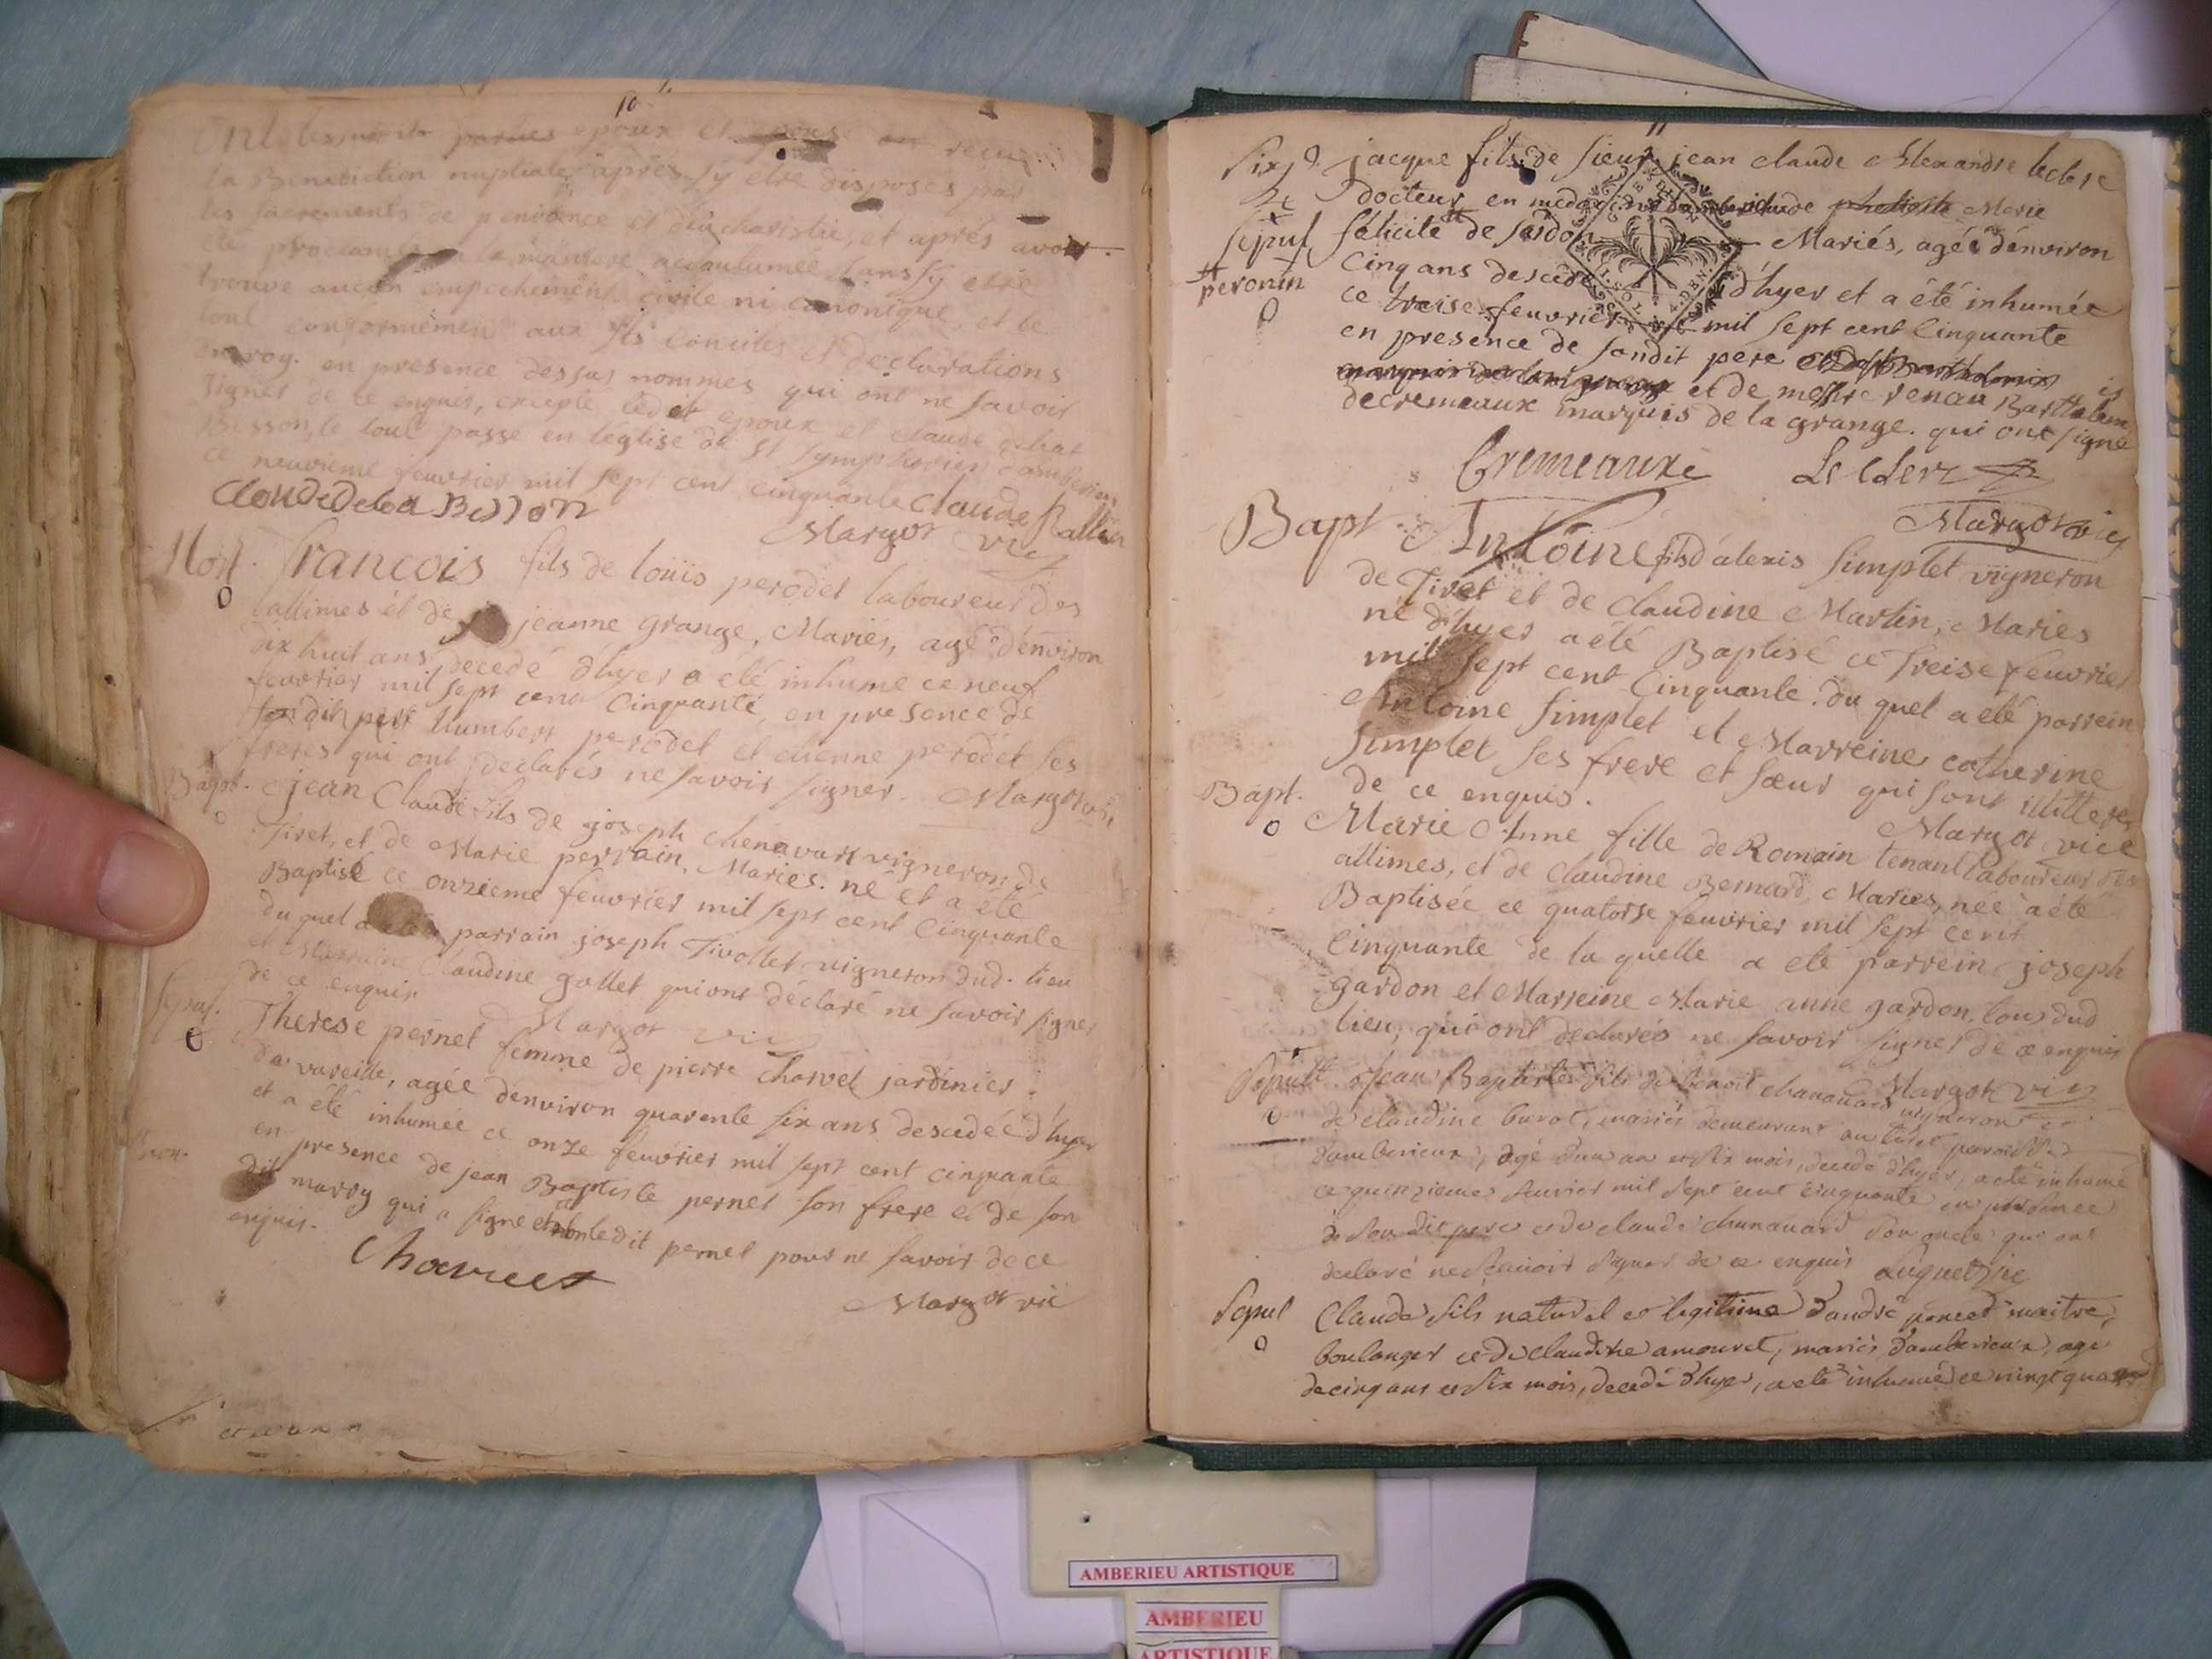 10
la Benediction nuptiale, aprés sÿ etre disposés par
les sacrements de penitence et d'eucharistie, et aprés avoir
été proclamés a la maniere accoutumée sans sÿ etre
trouvé aucun empechement civile ni canonique et le
tout conformement aux sts conciles et declarations
du roy. en presence des sus nommes qui ont ne savoir
signer de ce enquis, excepté ledit epoux et claude debat
Besson, le tout passé en l'église de st symphorien d'amberieux
ce neuvieme feuvrier mil sept cent cinquante Claude Rallin
Claude deba Besson
Margot vic
Mort. francois fils de loüis perodet laboureur des
allimes et de jeanne grange, Mariés, agé d'environ
dix huit ans, decedé d'hyer a été inhumé ce neuf
feuvrier mil sept cent cinquante, en presence de
son dit pere humbert perodet et etienne perodet ses
freres qui ont declarés ne savoir signer. Margot vic
Bapt. jean Claude fils de joseph chenavard vigneron de
Tiret, et de Marie perrain, Mariés. né et a été
Baptisé ce onzieme feuvrier mil sept cent cinquante
du quel a été parrain joseph Tivollet vigneron dud. lieu
et Marraine Claudine gollet qui ont déclaré ne savoir signer
de ce enquis
Margot vic
sepul. Therese pernet femme de pierre charvet jardinier
de vareille, agée d'environ quarente six ans decedée d'hyer
et a été inhumée ce onze feuvrier mil sept cent cinquante
en presence de jean Baptiste pernet son frere et de son
dit marry qui a signé et non ledit pernet pour ne savoir de ce
enquis.
Charvet
Margot vic
11
jacque fils de sieur jean claude Alexandre leclerc
docteur en medecine d'amberieux et de Marie
sepul félicité de sardon Mariés, agée d'environ
peronin
cinq ans decedé d'hyer et a été inhumée
ce treise feuvrier mil sept cent cinquante
en presence de sondit pere
et de messire renau Barthelemis
decremeaux marquis de la grange. qui ont signé
Cremeaux Le Clerc
Margot vic
Bapt. Antoine fils d'alexis simplet vigneron
de Tiret et de Claudine Martin, Mariés
né d'hyer a été Baptisé ce treise feuvrier
mil sept cent cinquante. du quel a été parrein
Antoine simplet et Marreine catherine
simplet ses frere et sœur qui sont illitteres
de ce enquis.
Margot vice
Bapt. Marie Anne fille de Romain tenant laboureur des
allimes, et de Claudine Bernard, Mariés, née a été
Baptisée ce quatorse feuvrier mil sept cent
cinquante de la quelle a été parrein joseph
gardon et Marreine Marie anne gardon, tous dud
lieu, qui ont declarés ne savoir signer de ce enquis
Margot vic
Sepult. Jean Baptiste fils de benoit chanavard vigneron et
de claudine burot, mariés demeurant au tiret paroisse
d'amberieux, agé d'un an et six mois, decedé d'hyer, a été inhumé
ce quinzieme feuvrier mil sept cent cinquante en presence
de son dit pere et de claude chanavard son oncle qui ont
declaré ne sçavoir signer de ce enquis Luquet
Sepul Claude fils naturel et legitime d'andré poncet maitre
boulanger et de claudine amouret, mariés d'amberieux, agé
de cinq ans et six mois, decedé d'hyer, a été inhumé ce vingt quatre
AMBERIEU ARTISTIQUE
AMBERIEU
ARTISTIQUE